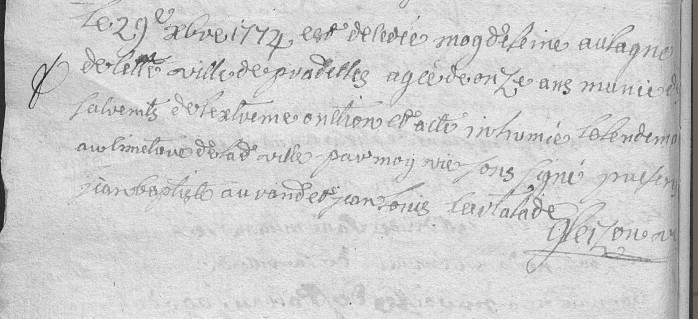 le 29e xbre 1774 est decedée magdeleine aulagne
de cette ville de pradelles agée de onze ans munie d
sacrements de lextreme onction et a eté inhumée le lendema
au cimetiere de lad. ville par moy vic sous signé presens
jean baptiste aurand et jean louis